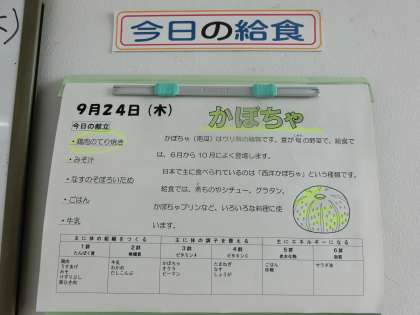 今日の給食
9月24日（木）
かぼちゃ
今日の献立
・鶏肉のてり焼き
・みそ汁
・なすのそぼろいため
・ごはん
・牛乳
かぼちゃ（南瓜）はウリ科の植物です。夏が旬の野菜で、給食で
は、6月から10月によく登場します。
日本で主に食べられているのは「西洋かぼちゃ」という種類です。
給食では、煮ものやシチュー、グラタン、
かぼちゃプリンなど、いろいろな料理に使
います。
主に体の組織をつくる
主に体の調子を整える
主にエネルギーになる
1群 2群 3群 4群 5群 6群
たんぱく質 無機質 ビタミンA ビタミンC 炭水化物 脂質
鶏肉 牛乳 かぼちゃ たまねぎ ごはん サラダ油
うすあげ わかめ オクラ なす 砂糖
みそ だしこんぶ ピーマン しょうが
けずりぶし
豚ひき肉